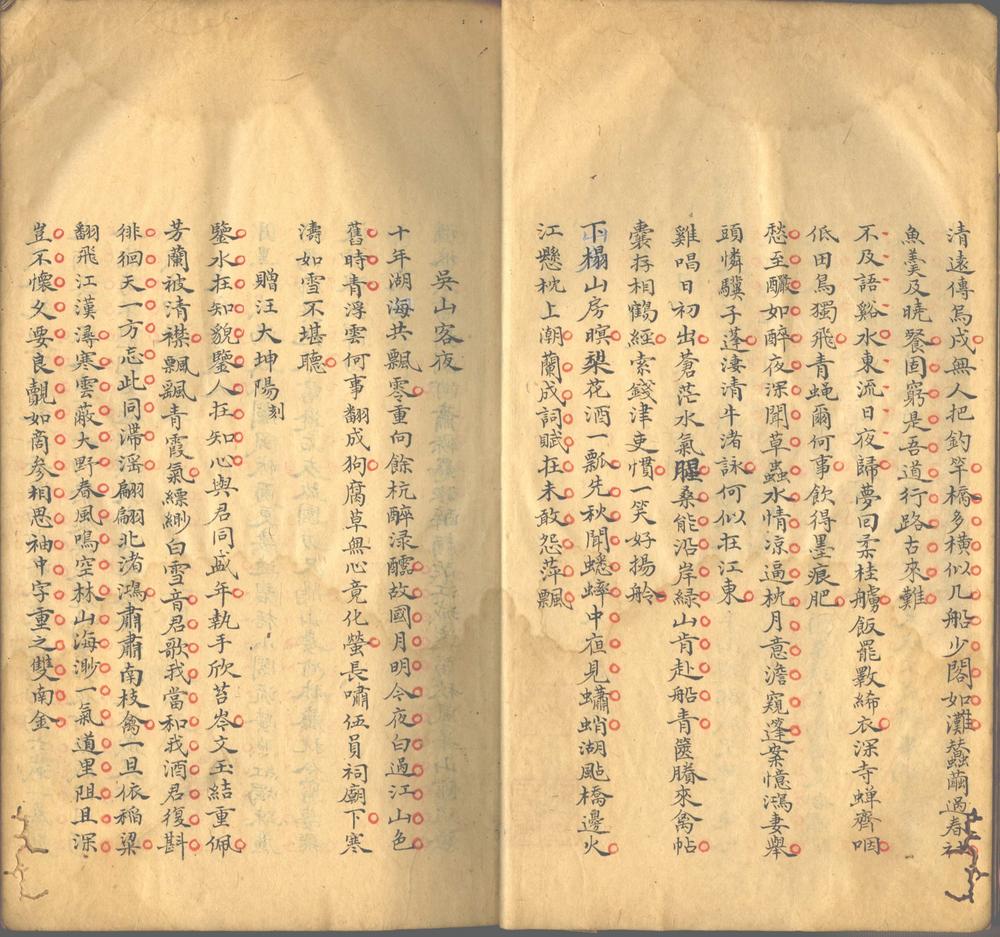 清遠傳烏戍無人把釣竿橋多橫似几船少閣如灘蠶繭過春社
魚羹及曉餐固窮是吾道行路古來難
不及語谿水東流日夜歸夢回柔桂艣飯罷數絺衣深寺蟬齊咽
低田鳥獨飛青蠅爾何事飲得墨痕肥
愁至釅如醉夜深聞草蟲水情涼逼枕月意澹窺篷案憶鴻妻舉
頭憐驥子蓬淒清牛渚詠何似在江東
雞唱日初出蒼茫水氣腥桑能沿岸綠山肯赴船青篋賸來禽帖
囊存相鶴經索錢津吏慣一笑好揚舲
下榻山房暝梨花酒一瓢先秋聞蟋蟀中夜見蠨蛸湖颭橋邊火
江懸枕上潮蘭成詞賦在未敢怨萍飄
吳山客夜
十年湖海共飄零重向餘杭醉淥醽故國月明今夜白過江山色
舊時青浮雲何事翻成狗腐草無心竟化螢長嘯伍員祠廟下寒
濤如雪不堪聽
贈汪大坤陽刻
鑒水在知貌鑒人在知心與君同盛年執手欣苔岑文玉結重佩
芳蘭被清襟飄颻青霞氣縹緲白雪音君歌我當和我酒君復斟
徘徊天一方忘此同滯滛翩翩北渚鴻肅肅南枝禽一旦依稻粱
翻飛江漢潯寒雲蔽大野春風鳴空林山海渺一氣道里阻且深
豈不懷久要良覿如商參相思袖中字重之雙南金